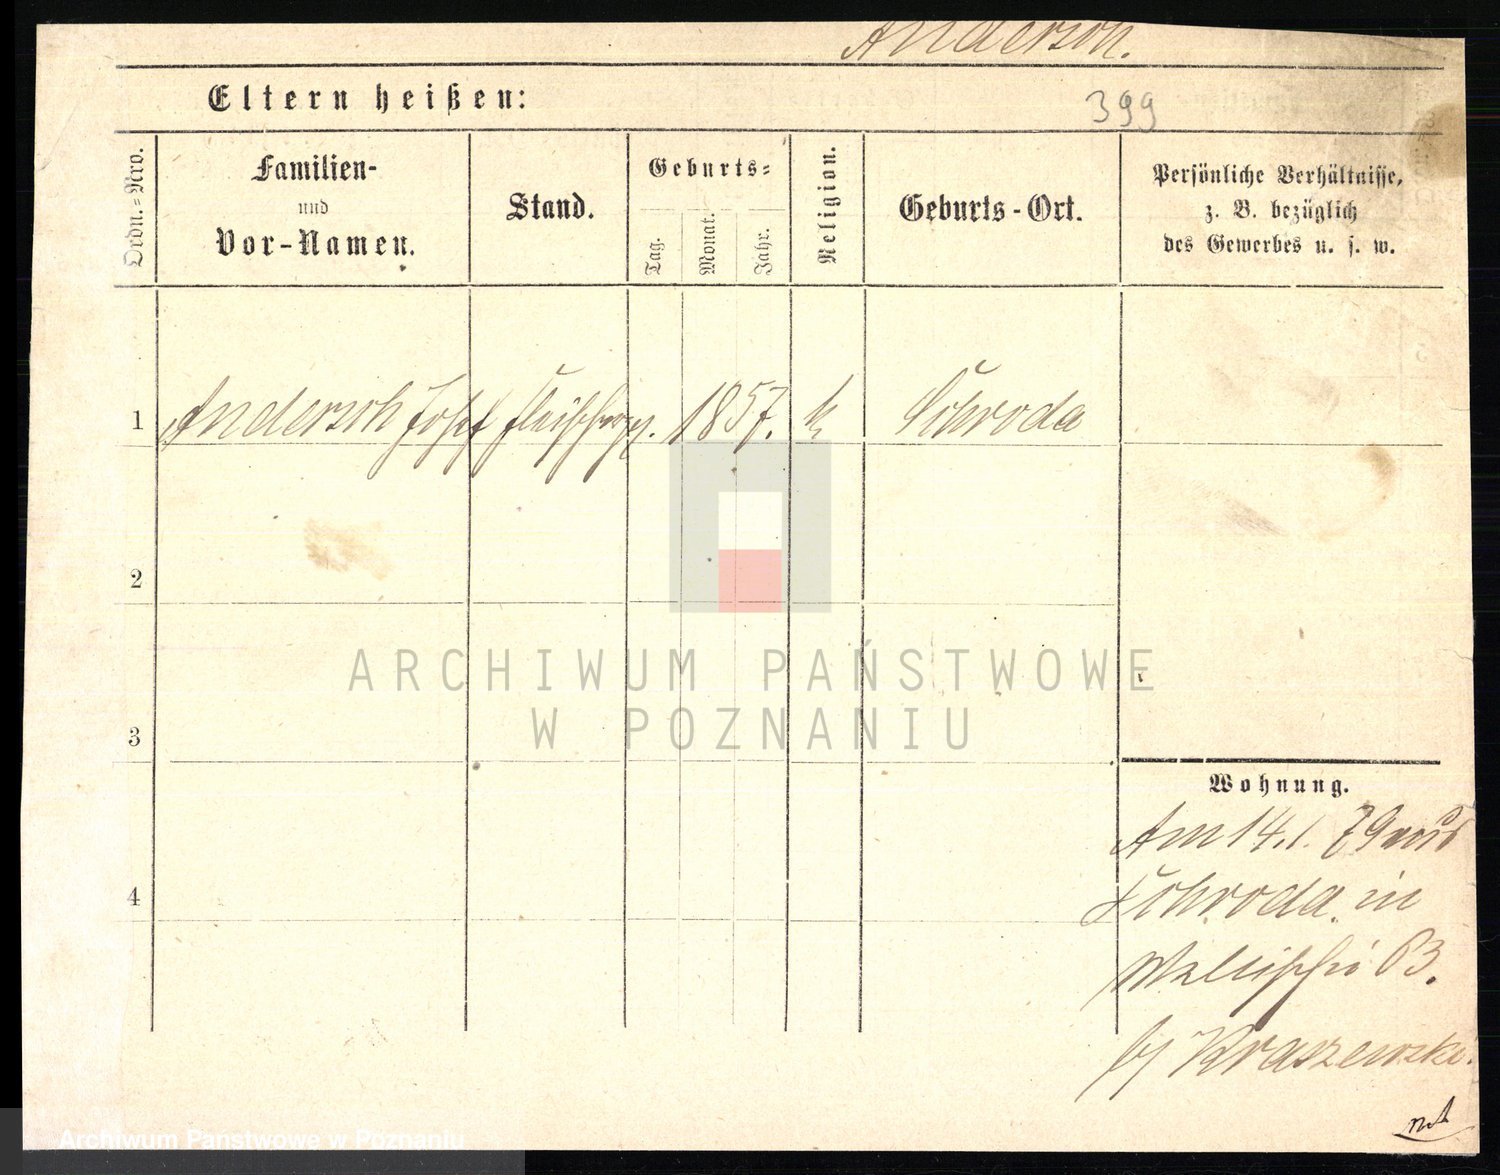 Andersoh.
Eltern heißen:
399
Ordn.=Nro.
Familien-
und
Vor-Namen.
Stand.
Geburts=
Tag.
Monat.
Jahr.
Religion.
Geburts-Ort.
Persönliche Verhältnisse,
z. B. bezüglich
des Gewerbes u. s. w.
1 Andersoh Josef 1857. k Schroda
2
3
4
ARCHIWUM PAŃSTWOWE
W POZNANIU
Wohnung.
Am 14.1. 79 aus
Schroda in
Wallischei 63.
bj Kraszewski.
Archiwum Państwowe w Poznaniu